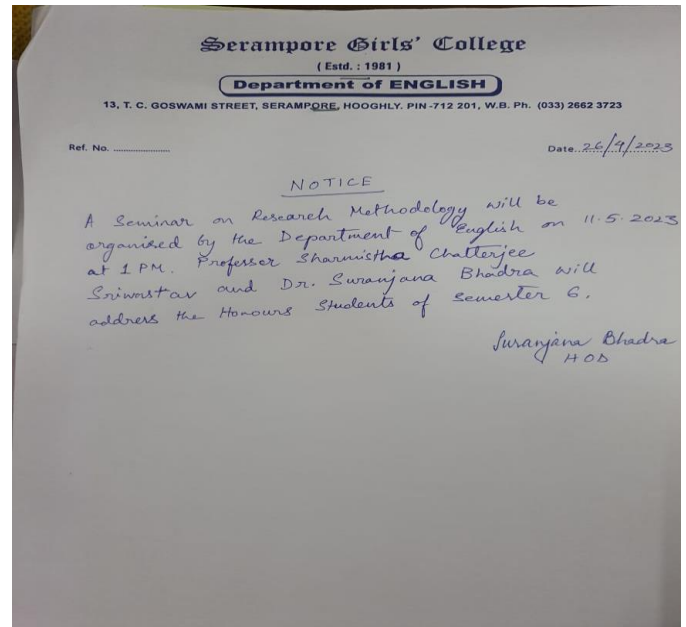 Serampore Girls' College
( Estd. : 1981 )
Department of ENGLISH
13, T. C. GOSWAMI STREET, SERAMPORE, HOOGHLY. PIN -712 201, W.B. Ph. (033) 2662 3723
Ref. No. ...................... Date. 26/4/2023
NOTICE
A Seminar on Research Methodology will be
organised by the Department of English on 11.5.2023
at 1 PM. Professor Sharmistha Chatterjee
Sriwastav and Dr. Suranjana Bhadra will
address the Honours Students of Semester 6.
Suranjana Bhadra
HOD